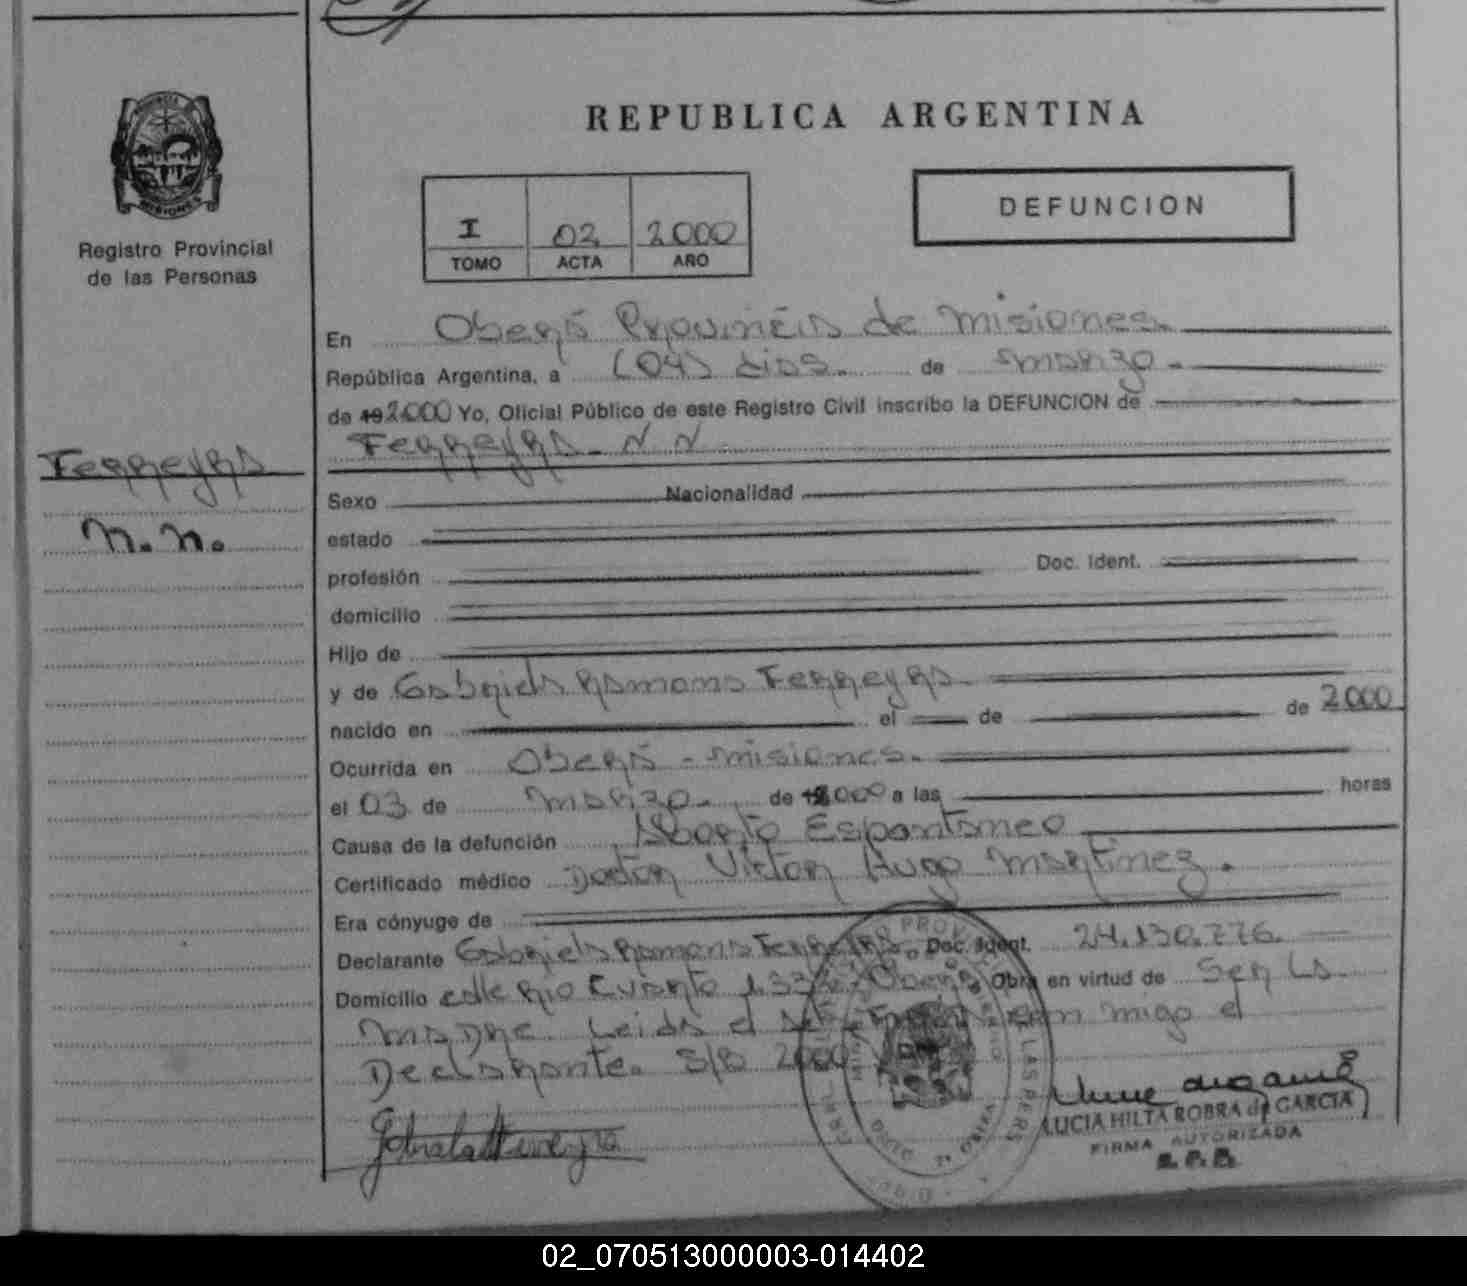 REPUBLICA ARGENTINA
PROVINCIA
MISIONES
Registro Provincial
de las Personas
I 02 2000
TOMO ACTA AÑO
DEFUNCION
En Oberá Provincia de Misiones.
República Argentina, a (04) dias. de marzo.
de 192000 Yo, Oficial Público de este Registro Civil inscribo la DEFUNCION de
Ferreyra. N N
Ferreyra
n. n.
Sexo Nacionalidad
estado
profesión Doc. Ident.
domicilio
Hijo de
y de Gabriela Ramona Ferreyra.
nacido en el de de 2000
Ocurrida en Oberá - misiones.
el 03 de marzo. de 2000 a las horas
Causa de la defunción Aborto Espontaneo
Certificado médico Doctor Victor Hugo Martinez.
Era cónyuge de
Declarante Gabriela Ramona Ferreyra. Doc. Ident. 24.130.776.
Domicilio calle Rio Cuarto 133 Oberá Obra en virtud de Ser La
Madre. Leida el con migo el
Declarante. S/B 2000
LUCIA HILTA ROBRA de GARCIA
FIRMA AUTORIZADA
02_070513000003-014402